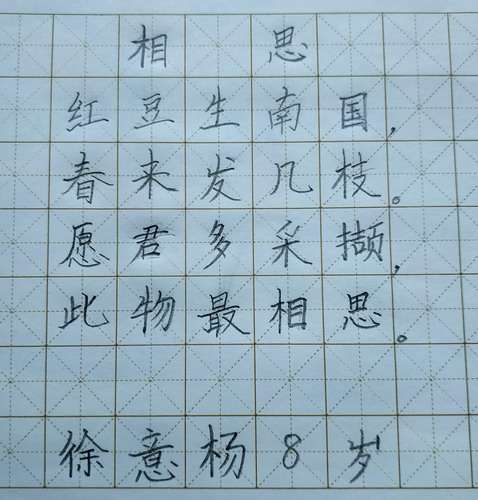 相思
红豆生南国，
春来发几枝。
愿君多采撷，
此物最相思。
徐意杨8岁